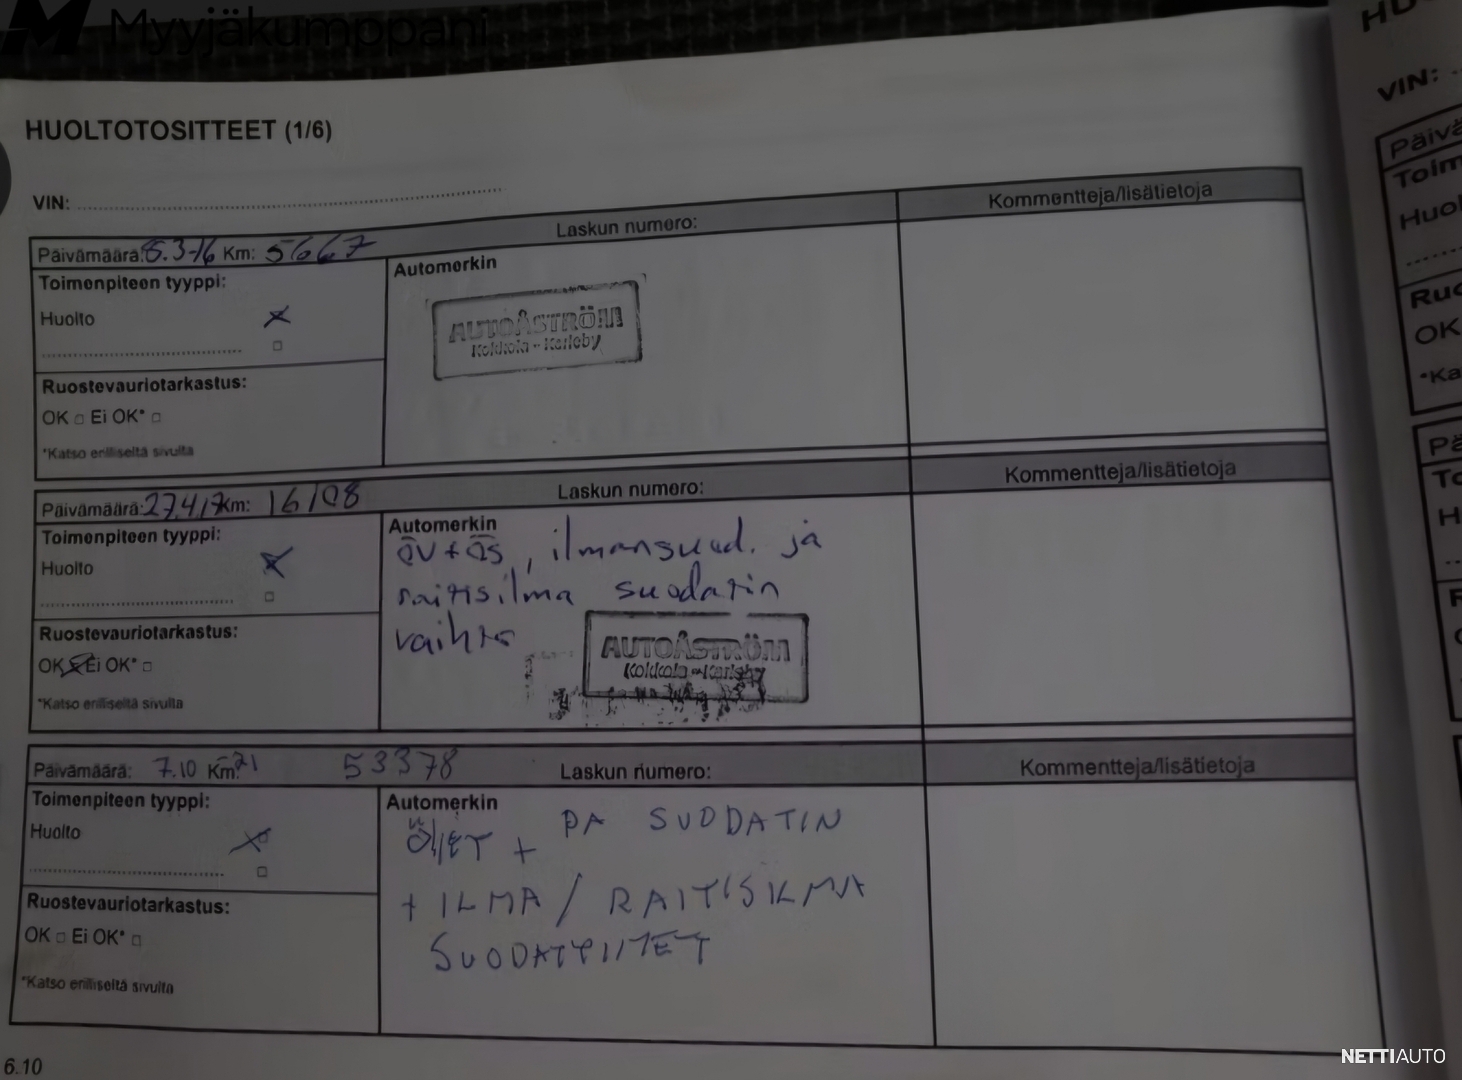 Myyjäkumppani
HUOLTOTOSITTEET (1/6)
VIN:
Laskun numero:
Kommentteja/lisätietoja
Päivämäärä: 8.3-16 Km: 5667
Toimenpiteen tyyppi:
Automerkin
Huolto
AUTOÅSTRÖM
Kokkola - Karleby
Ruostevauriotarkastus:
OK Ei OK*
*Katso erilliseltä sivulta
Päivämäärä: 27.4.17 Km: 16108
Laskun numero:
Kommentteja/lisätietoja
Toimenpiteen tyyppi:
Automerkin
Huolto
ÖV + ÖS, ilmansuod. ja
raitisilma suodatin
vaihto
Ruostevauriotarkastus:
OK Ei OK*
AUTOÅSTRÖM
Kokkola - Karleby
*Katso erilliseltä sivulta
Päivämäärä: 7.10 Km: 21 53378
Laskun numero:
Kommentteja/lisätietoja
Toimenpiteen tyyppi:
Automerkin
Huolto
ÖljET + PA SUODATIN
+ ILMA / RAITISILMA
Ruostevauriotarkastus:
OK Ei OK*
*Katso erilliseltä sivulta
6.10
VIN:
OK
*Ka
NETTIAUTO